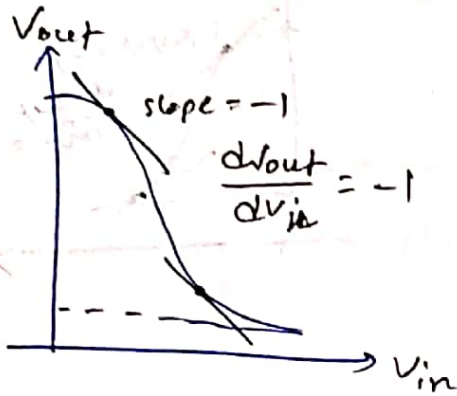 Vout
slope = -1
dVout
dVin
= -1
Vin